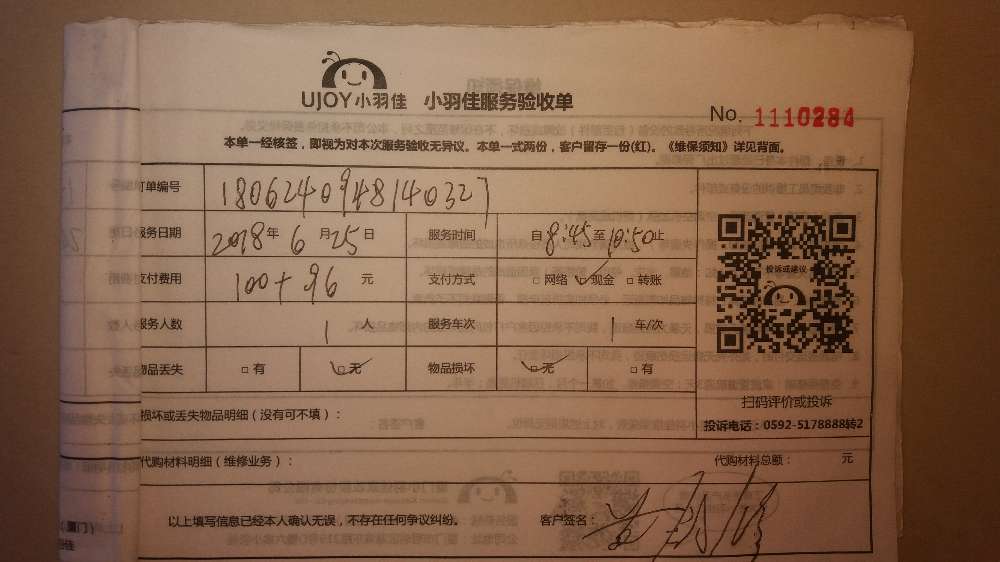 UJOY小羽佳 小羽佳服务验收单
No. 1110284
本单一经核签，即视为对本次服务验收无异议。本单一式两份，客户留存一份(红)。《维保须知》详见背面。
订单编号 1806240948140327
服务日期 2018年6月25日 服务时间 自8:45至10:50止
支付费用 100+96 元 支付方式 □网络 ☑现金 □转账
服务人数 1 人 服务车次 1 车/次
物品丢失 □有 ☑无 物品损坏 ☑无 □有
投诉或建议
扫码评价或投诉
投诉电话：0592-5178888转2
损坏或丢失物品明细（没有可不填）：
代购材料明细（维修业务）： 代购材料总额： 元
以上填写信息已经本人确认无误，不存在任何争议纠纷。 客户签名：